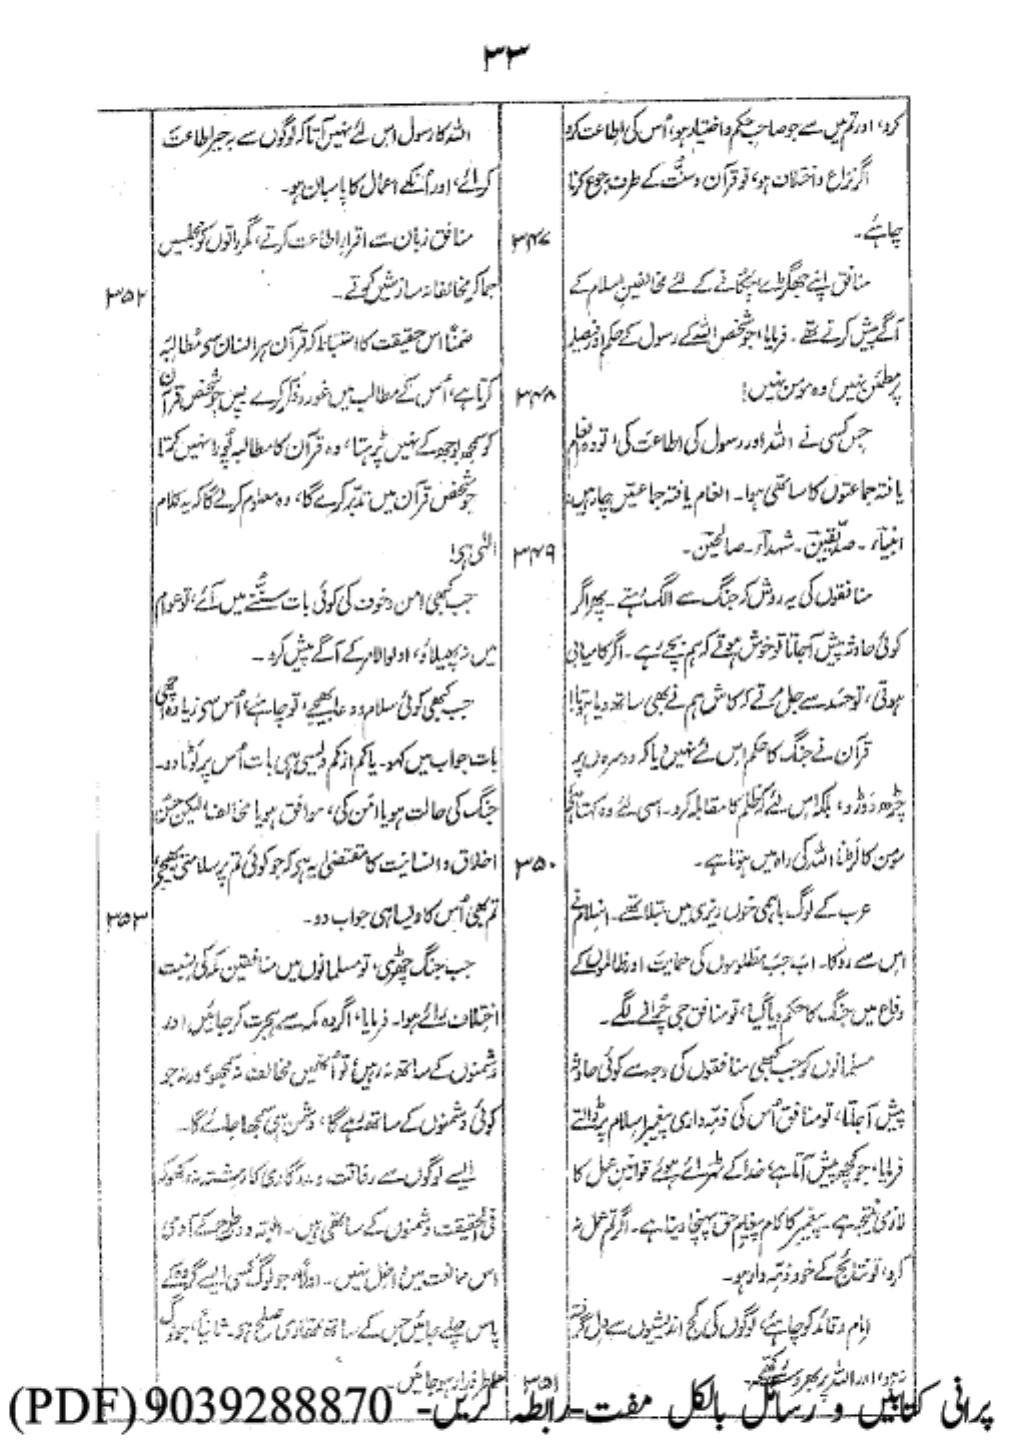 ۳۳
کرو، اور تم میں سے جو صاحب حکم و اختیار ہو، اُس کی اطاعت کرو
اگر نزاع و اختلاف ہو، تو قرآن و سنت کے طرف رجوع کرنا
چاہئے۔ ۳۴۷
منافق اپنے جھگڑے چکانے کے لئے مخالفین اسلام کے
آگے پیش کرتے تھے۔ فرمایا، جو شخص اللہ کے رسول کے حکم اور فیصلہ
پر مطمئن نہیں، وہ مومن نہیں! ۳۴۸
جس کسی نے اللہ اور رسول کی اطاعت کی، تو وہ انعام
یافتہ جماعتوں کا ساتھی ہوا۔ انعام یافتہ جماعتیں چار ہیں:
انبیاء۔ صدیقین۔ شہداء۔ صالحین۔ ۳۴۹
منافقوں کی یہ روش کہ جنگ سے الگ رہتے۔ پھر اگر
کوئی حادثہ پیش آجاتا تو خوش ہوتے کہ ہم بچے رہے۔ اگر کامیابی
ہوتی، تو حسد سے جل مرتے کہ کاش ہم نے بھی ساتھ دیا ہوتا!
قرآن نے جنگ کا حکم اس لئے نہیں دیا کہ دوسروں پر
چڑھ دوڑو، بلکہ اس لئے کہ ظلم کا مقابلہ کرو۔ اسی لئے وہ کہتا ہے
مومن کا لڑنا اللہ کی راہ میں ہوتا ہے۔ ۳۵۰
عرب کے لوگ باہمی خوں ریزی میں مبتلا تھے۔ اسلام نے
اس سے روکا۔ اب جب مظلوموں کی حمایت اور ظالموں کے
دفاع میں جنگ کا حکم دیا گیا، تو منافق جی چرانے لگے۔
مسلمانوں کو جب کبھی منافقوں کی وجہ سے کوئی حادثہ
پیش آجاتا، تو منافق اُس کی ذمہ داری پیغمبر اسلام پر ڈالتے
فرمایا، جو کچھ پیش آتا ہے، خدا کے ٹھہرائے ہوئے قوانین عمل کا
لازمی نتیجہ ہے۔ پیغمبر کا کام پیغام حق پہنچا دینا ہے۔ اگر تم عمل نہ
کرو، تو نتائج کے خود ذمہ دار ہو۔
امام و قائد کو چاہئے، لوگوں کی کج اندیشیوں سے دل گرفتہ
نہ ہو، اور اللہ پر بھروسہ رکھے۔ ۳۵۱
اللہ کا رسول اس لئے نہیں آتا کہ لوگوں سے بہ جبر اطاعت
کرائے، اور اُنکے اعمال کا پاسبان ہو۔
منافق زبان سے اقرار اطاعت کرتے، مگر راتوں کو مجلسیں
جما کر مخالفانہ سازشیں کرتے۔ ۳۵۲
ضمناً اس حقیقت کا استنباط کہ قرآن ہر انسان سے مطالبہ
کرتا ہے، اُس کے مطالب میں غور و فکر کرے پس جو شخص قرآن
کو سمجھ بوجھ کے نہیں پڑھتا، وہ قرآن کا مطالبہ پورا نہیں کرتا
جو شخص قرآن میں تدبر کرے گا، وہ معلوم کرلے گا کہ یہ کلام
الٰہی ہے!
جب کبھی امن و خوف کی کوئی بات سننے میں آئے، تو عوام
میں نہ پھیلاؤ، اولوالامر کے آگے پیش کرو۔
جب کبھی کوئی سلام و دعا بھیجے، تو چاہئے، اُس سے زیادہ اچھی
بات جواب میں کہو۔ یا کم از کم ویسی ہی بات اُس پر لوٹا دو۔
جنگ کی حالت ہو یا امن کی، موافق ہو یا مخالف، لیکن حسن
اخلاق و انسانیت کا مقتضیٰ یہ ہے کہ جو کوئی تم پر سلامتی بھیجے
تم بھی اُس کا ویسا ہی جواب دو۔ ۳۵۳
جب جنگ چھڑی، تو مسلمانوں میں منافقین مکہ کی نسبت
اختلاف رائے ہوا۔ فرمایا، اگر وہ مکہ سے ہجرت کر جائیں اور
دشمنوں کے ساتھ نہ رہیں، تو اُنھیں مخالف نہ سمجھو، ورنہ جو
کوئی دشمنوں کے ساتھ رہے گا، دشمن ہی سمجھا جائے گا۔
ایسے لوگوں سے رفاقت و مددگاری کا رشتہ نہ رکھو کہ
فی الحقیقت دشمنوں کے ساتھی ہیں۔ البتہ دو طرح کے آدمی
اس ممانعت میں داخل نہیں۔ اولاً، جو لوگ کسی ایسے گروہ کے
پاس چلے جائیں جس کے ساتھ تمھاری صلح ہو۔ ثانیاً، جو لوگ
طرفدار ہو جائیں۔
پرانی کتابیں و رسائل بالکل مفت۔رابطہ کریں۔ 9039288870 (PDF)